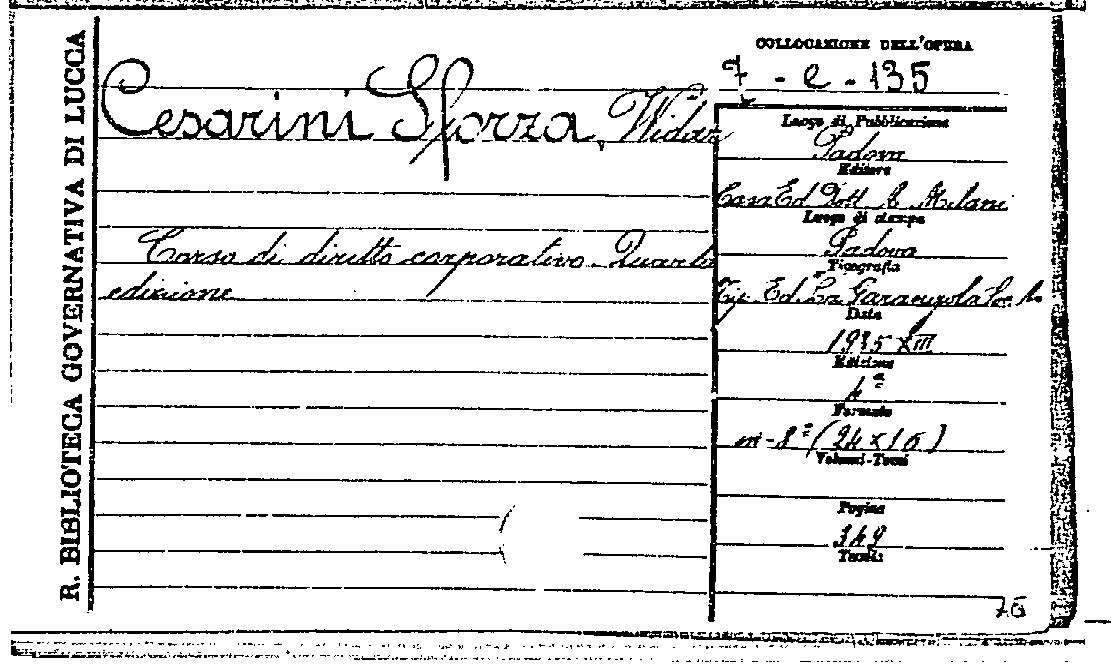 R. BIBLIOTECA GOVERNATIVA DI LUCCA
Cesarini Sforza, Widar
Corso di diritto corporativo. Quarta
edizione
COLLOCAZIONE DELL'OPERA
7 - e - 135
Luogo di Pubblicazione
Padova
Editore
Casa Ed. Dott. A. Milani
Luogo di stampa
Padova
Tipografia
Tip. Ed. La Garangola
Data
1935 XIII
Edizione
4ª
Formato
in-8° (24 x 16)
Volumi-Tomi
Pagine
349
Tavole